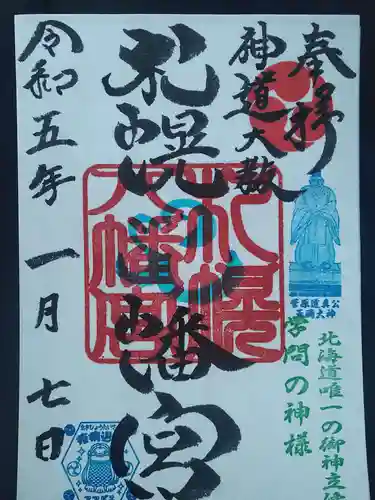 奉拝
神道大教
札幌八幡宮
令和五年一月七日
札幌八幡宮
菅原道真公
天満大神
学問の神様
北海道唯一の御神立像